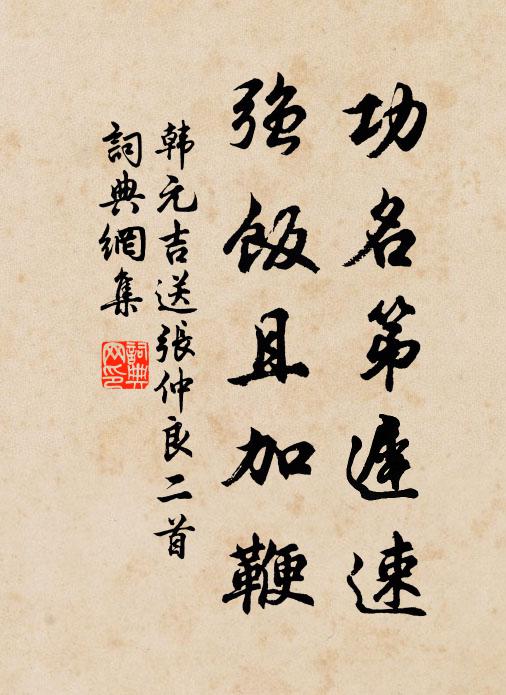 功名第遲速
强飯且加鞭
韩元吉送張仲良二首
詞典網集
詞典網印